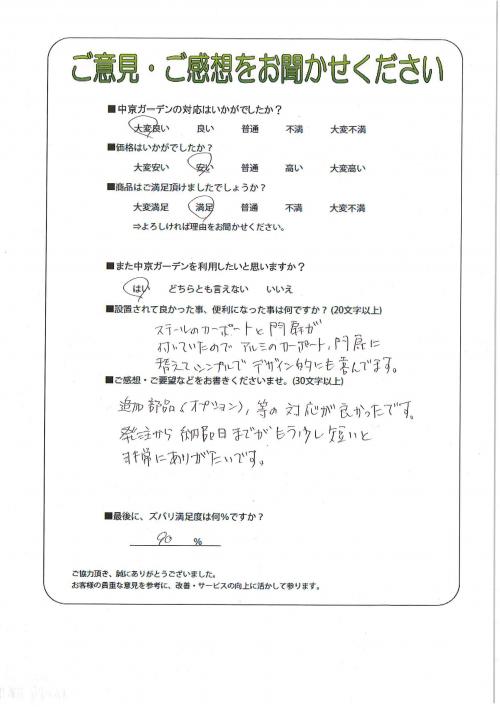 ご意見・ご感想をお聞かせください
■中京ガーデンの対応はいかがでしたか？
大変良い 良い 普通 不満 大変不満
■価格はいかがでしたか？
大変安い 安い 普通 高い 大変高い
■商品はご満足頂けましたでしょうか？
大変満足 満足 普通 不満 大変不満
⇒よろしければ理由をお聞かせください。
■また中京ガーデンを利用したいと思いますか？
はい どちらとも言えない いいえ
■設置されて良かった事、便利になった事は何ですか？(20文字以上)
スチールのカーポートと門扉が
付いていたので アルミのカーポート、門扉に
替えてシンプルで デザイン的にも喜んでます。
■ご感想・ご要望などをお書きくださいませ。(30文字以上)
追加部品（オプション）、等の対応が良かったです。
発注から納品日までがもう少し短いと
非常にありがたいです。
■最後に、ズバリ満足度は何％ですか？
90 %
ご協力頂き、誠にありがとうございました。
お客様の貴重な意見を参考に、改善・サービスの向上に活かして参ります。